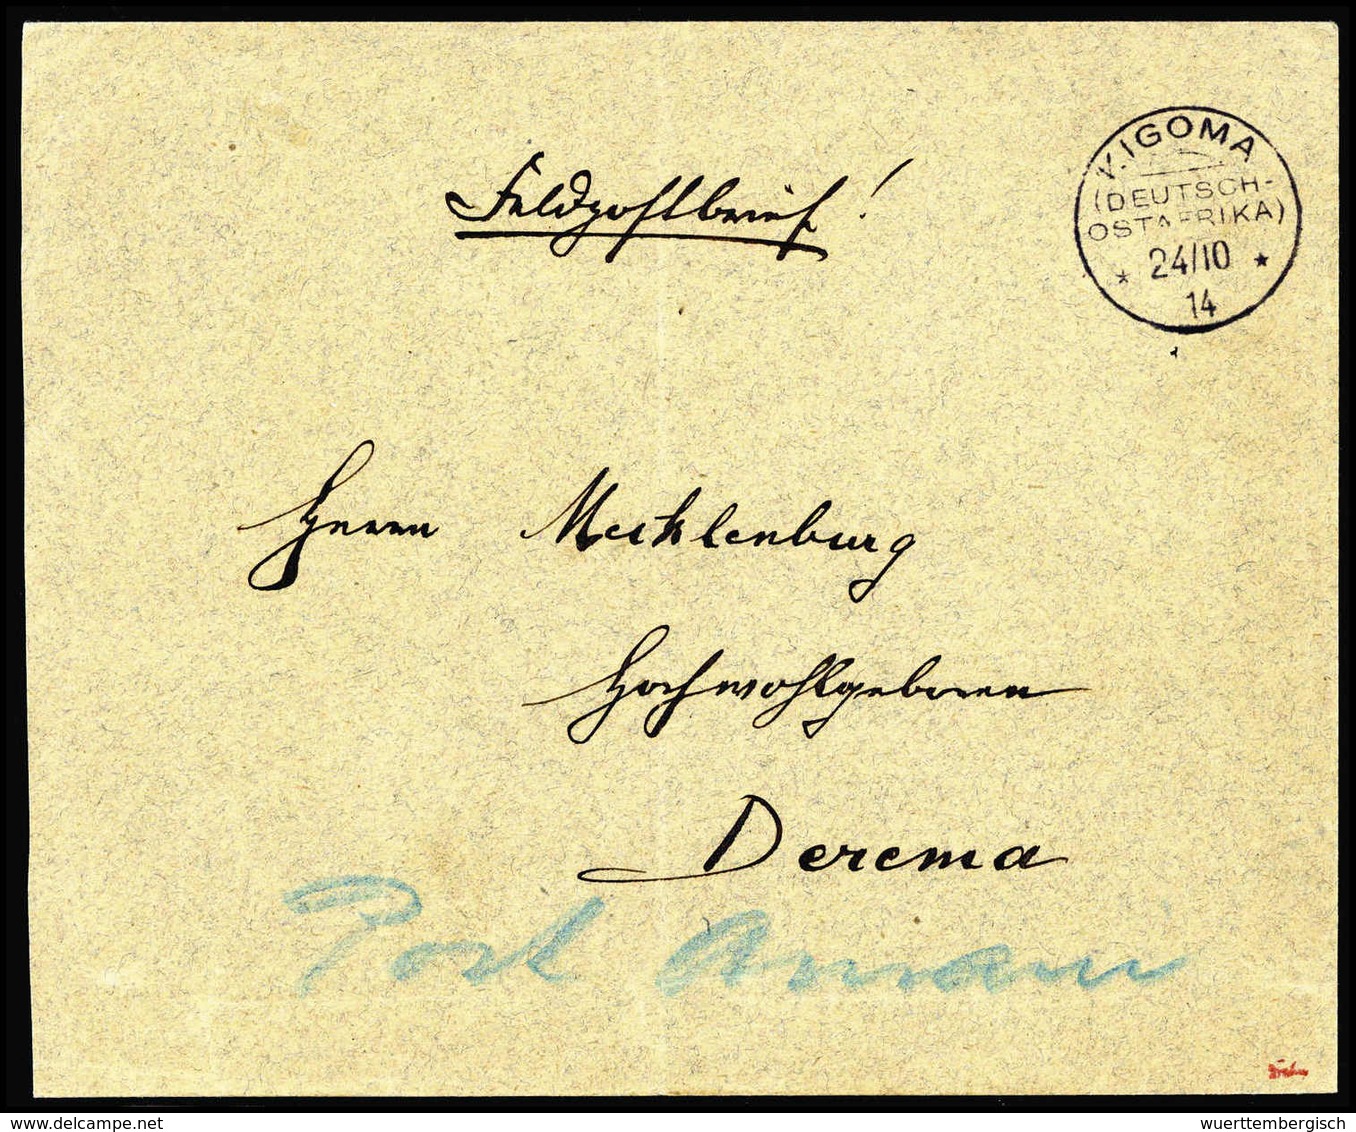 Feldpostbrief!
KIGOMA
(DEUTSCH-
OSTAFRIKA)
* 24/10 *
14
Herrn Mecklenburg
Hochwohlgeboren
Derema
Post Amani
www.delcampe.net
wuerttembergisch